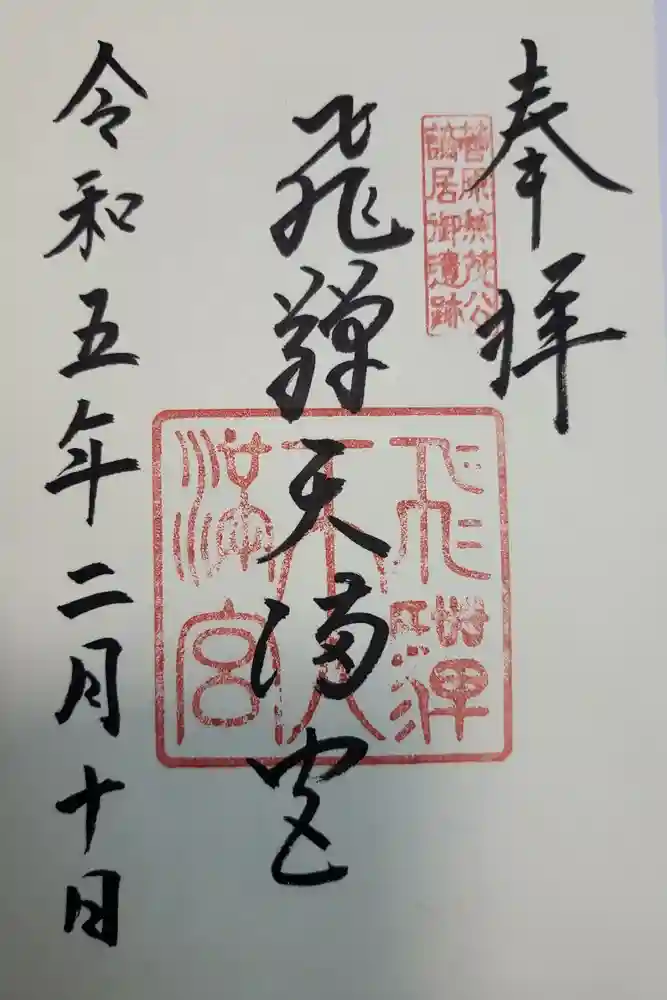 奉拝
菅原兼茂公
謫居御遺跡
飛騨天満宮
飛騨
天満宮
令和五年二月十日